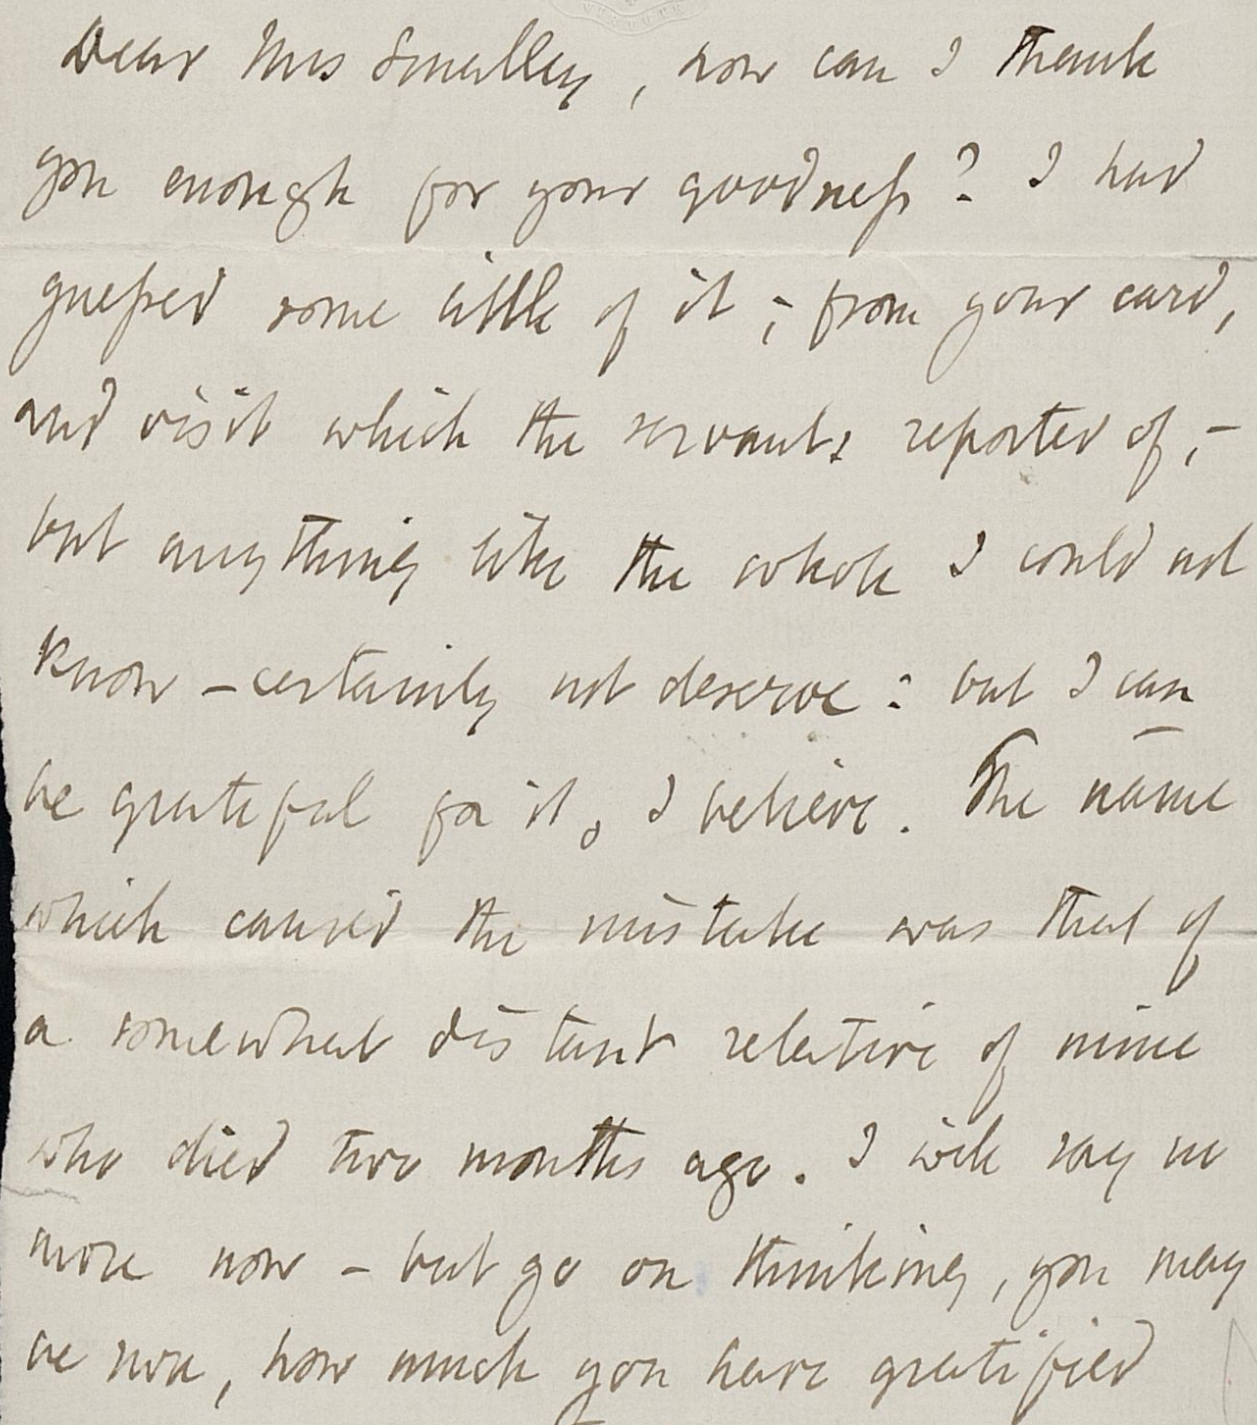 Dear Mrs Smalley, how can I thank
you enough for your goodness? I had
guessed some little of it; from your card,
and visit which the servants reported of, –
but anything like the whole I could not
know – certainly not deserve: but I can
be grateful for it, I believe. The name
which caused the mistake was that of
a somewhat distant relative of mine
who died two months ago. I will say no
more now – but go on thinking, you may
be sure, how much you have gratified